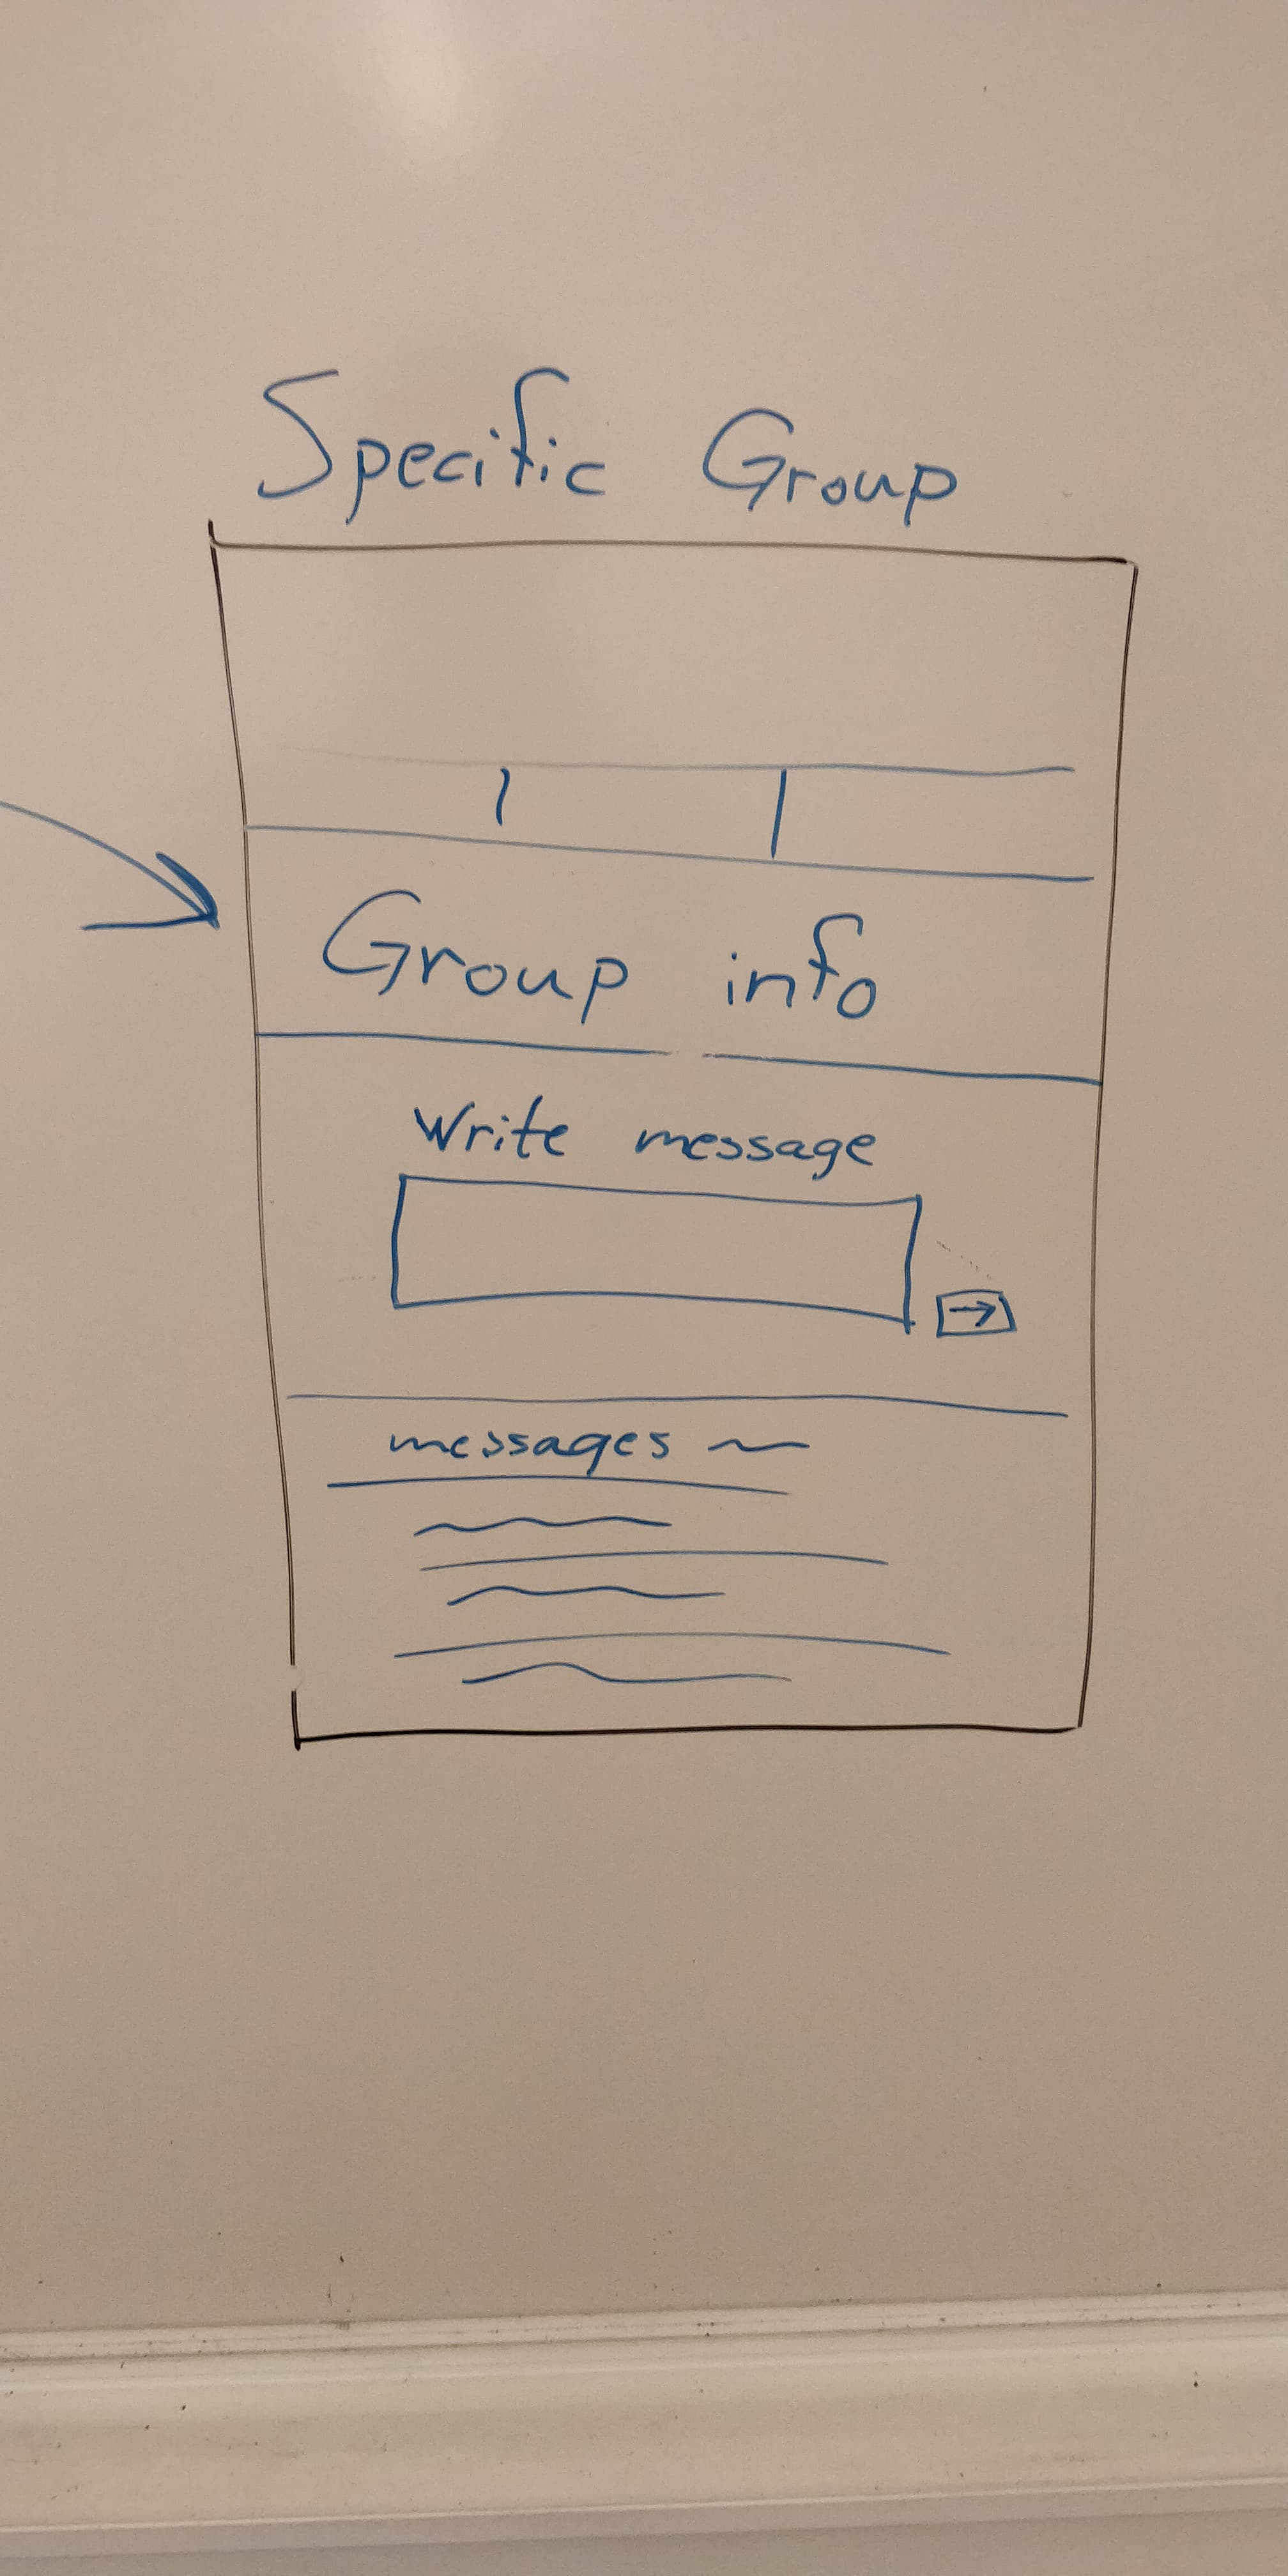 Specific Group
Group info
Write message
→
messages